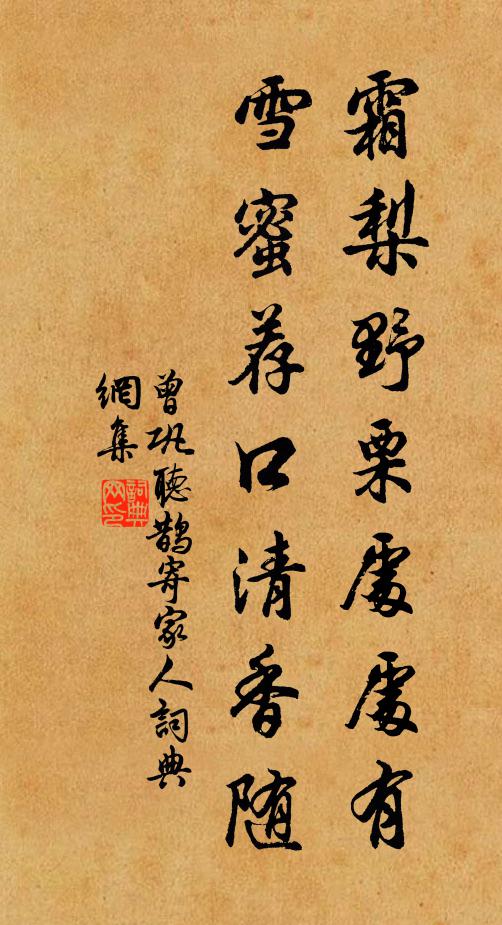 霜梨野栗處處有
雪蜜荐口清香随
曾巩聽鵲寄家人詞典
網集
詞典
网印